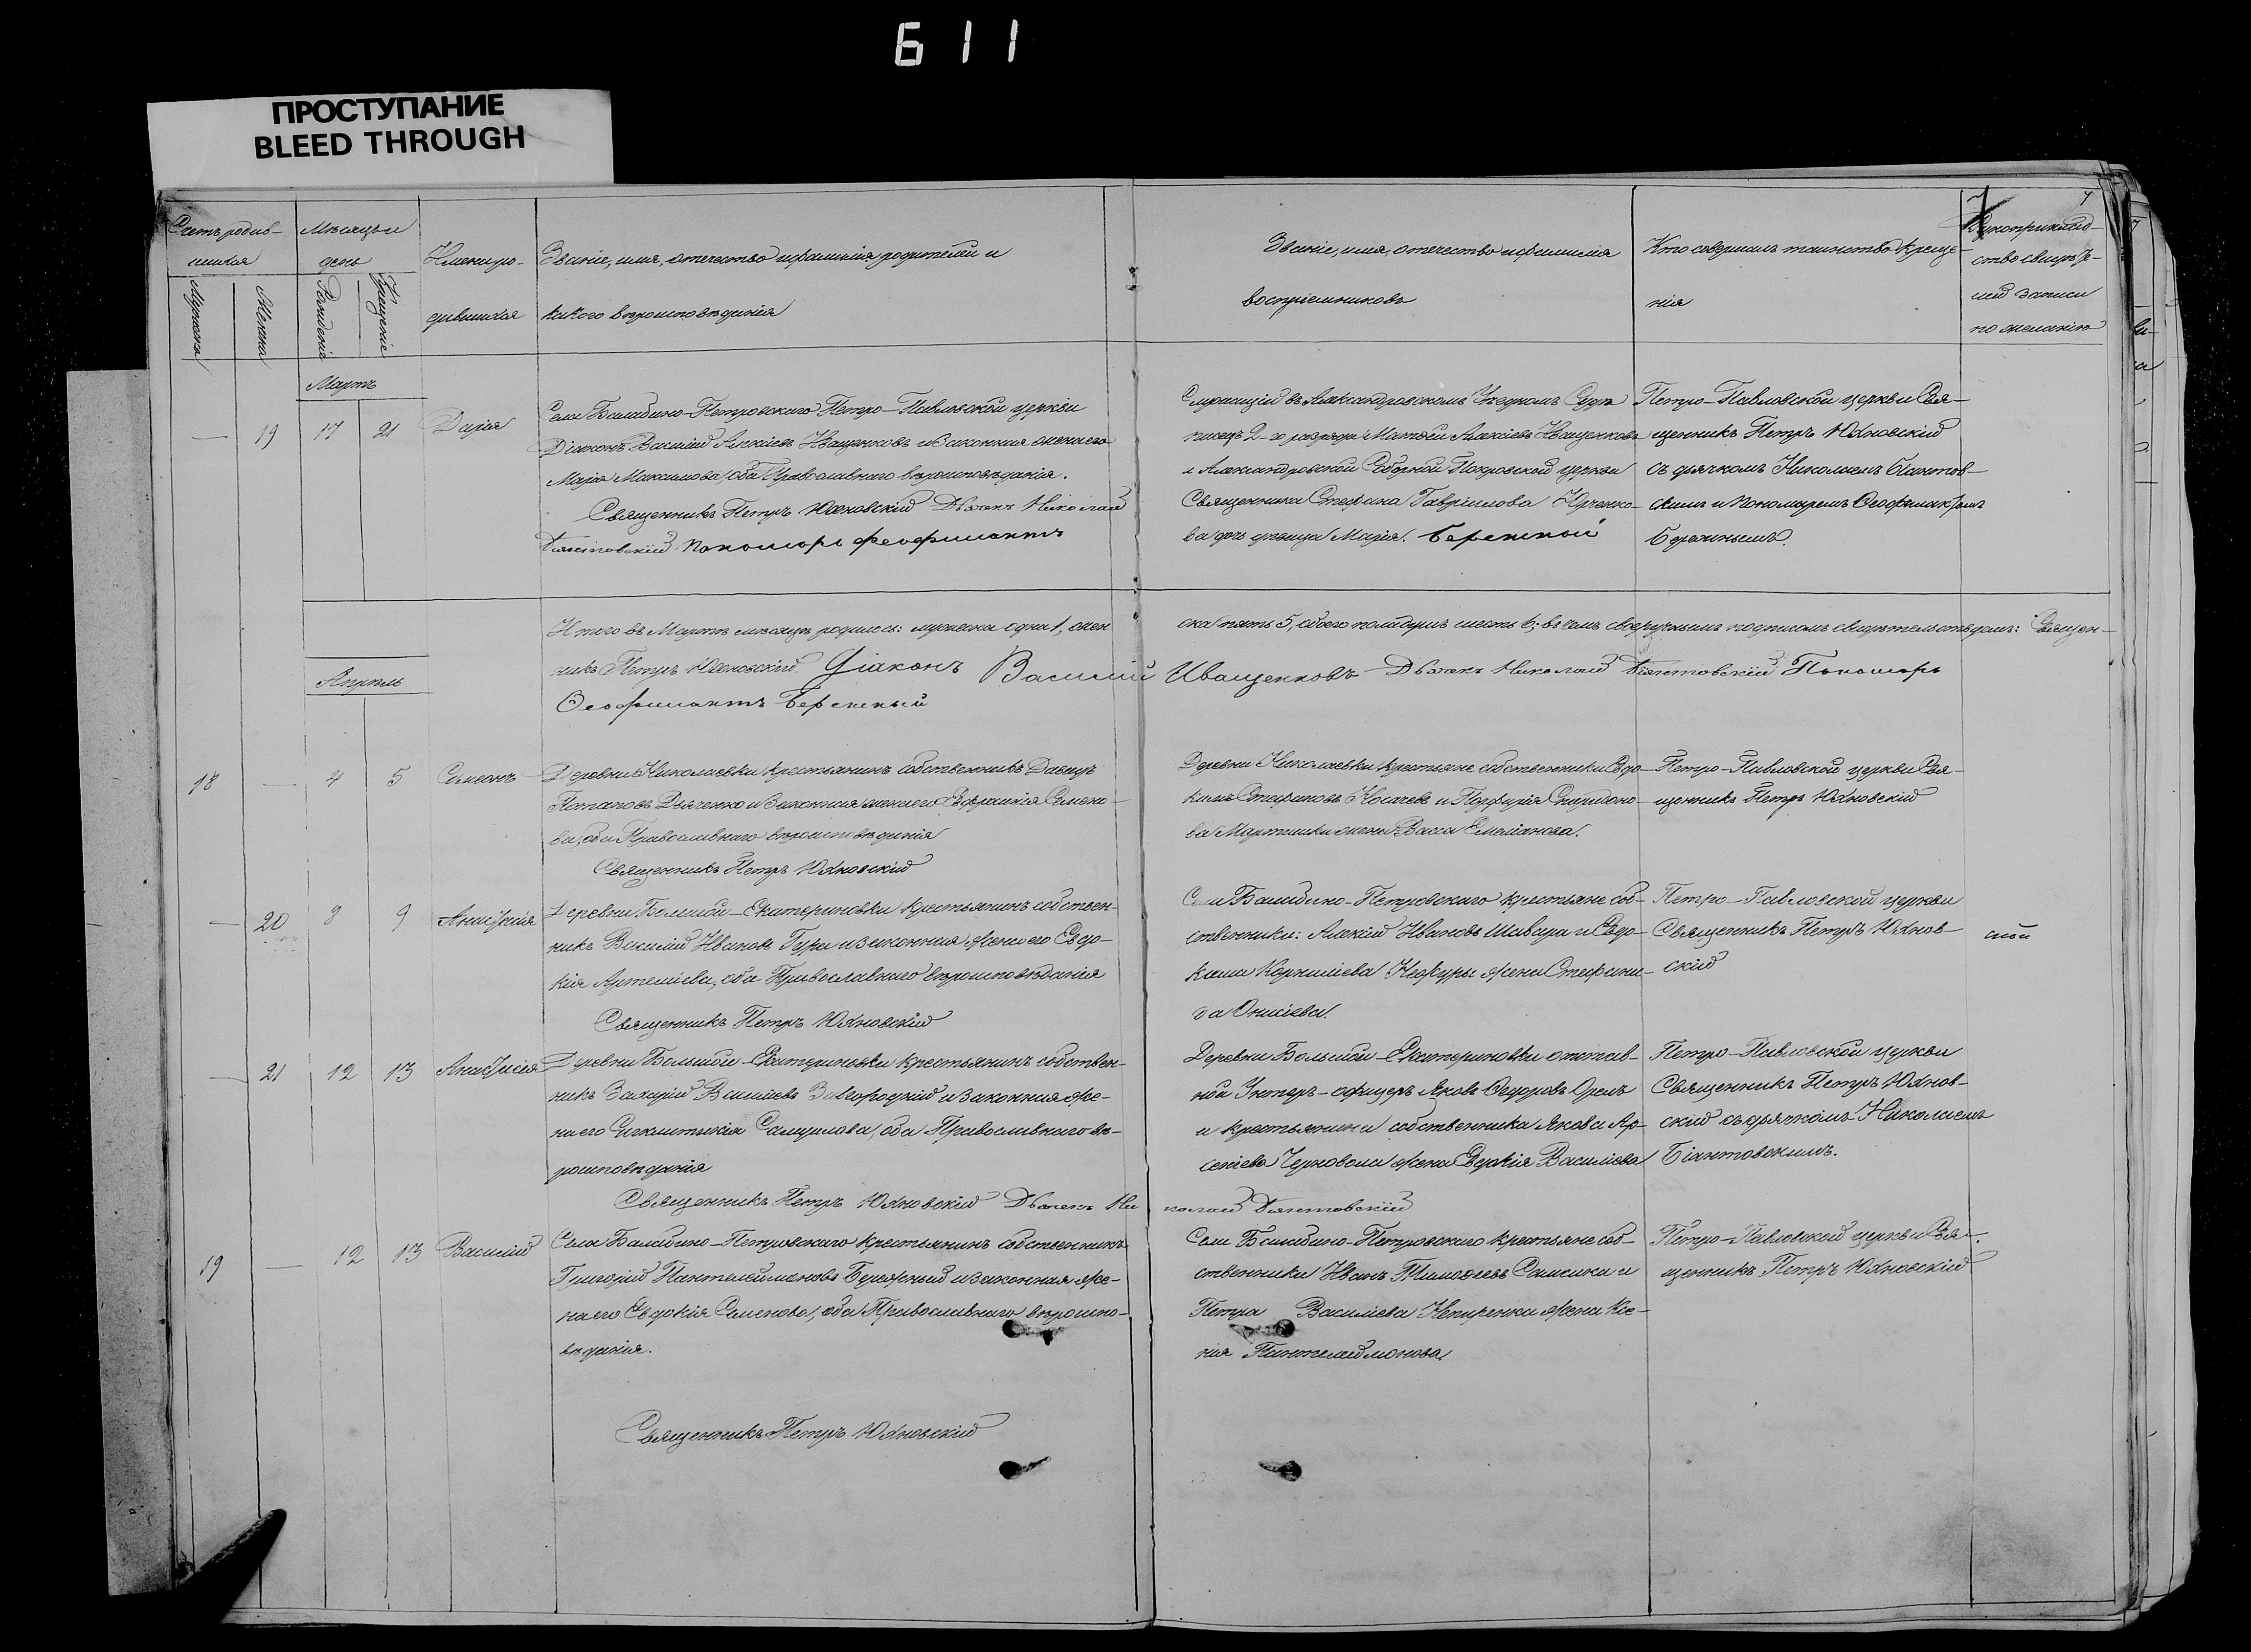 611
ПРОСТУПАНИЕ
BLEED THROUGH
7
Счетъ родив-
шихся
Мѣсяцъ и
день
Имена ро-
дившихся
Званіе, имя, отечество и фамилія родителей и
какого вѣроисповѣданія
Званіе, имя, отечество и фамилія
воспріемниковъ
Кто совершалъ таинство креще-
нія
Рукоприклад-
ство свидѣте-
лей записи
по желанію
Мужеска
Женска
Рожденіе
Крещеніе
Мартъ
— 19 17 21 Дарія
Села Балабино-Петровскаго Петро-Павловской церкви
Діаконъ Василій Алексіевъ Иващенковъ и законная жена его
Марія Максимова, оба Православнаго вѣроисповѣданія.
Священникъ Петръ Юхновскій Дьячекъ Николай
Біянтовскій Пономарь Феофилактъ
Служащій въ Александровскомъ Уѣздномъ Судѣ
писецъ 2-го разряда Матѳей Алексіевъ Иващенковъ
и Александровской Соборной Покровской церкви
Священника Стефана Гавріилова Юрченко-
ва дочь дѣвица Марія. Бережной
Петро-Павловской церкви Свя-
щенникъ Петръ Юхновскій
съ дьячкомъ Николаемъ Біантов-
скимъ и пономаремъ Ѳеофилактомъ
Бережнымъ.
Итого въ Мартѣ мѣсяцѣ родилось: мужеска одна 1, жен
ска пять 5, обоего пола душъ шесть 6; въ чемъ своеручнымъ подписомъ свидѣтельствуемъ: Священ-
никъ Петръ Юхновскій Діаконъ Василій Иващенковъ Дьячекъ Николай Біянтовскій Пономарь
Ѳеофилактъ Бережный
Апрѣль
18 — 4 5 Симеонъ
Деревни Николаевки крестьянинъ собственникъ Давидъ
Потаповъ Дьяченко и законная жена его Евфросинія Семено-
ва, оба Православнаго вѣроисповѣданія
Священникъ Петръ Юхновскій
Деревни Николаевки крестьяне собственники Евдо-
кимъ Стефановъ Носачевъ и Порфирія Спиридоно-
ва Мартышки жена Васса Емеліанова.
Петро-Павловской церкви Свя-
щенникъ Петръ Юхновскій
— 20 8 9 Анастасія
Деревни Большой-Екатериновки крестьянинъ собствен-
никъ Василій Ивановъ Гура и законная жена его Евдо-
кія Артеміева, оба Православнаго вѣроисповѣданія
Священникъ Петръ Юхновскій
Села Балабино-Петровскаго крестьяне соб-
ственники: Алексій Ивановъ Шавара и Евдо-
кима Корниліева жена Стефани-
да Онисіева.
Петро-Павловской церкви
Священникъ Петръ Юхнов-
скій
— 21 12 13 Анастасія
Деревни Большой-Екатериновки крестьянинъ собствен-
никъ Захарій Василіевъ Завгородній и законная же-
на его Самуилова, оба Православнаго вѣ-
роисповѣданія
Священникъ Петръ Юхновскій Дьячекъ Ни колай Біянтовскій
Деревни Большой-Екатериновки отстав-
ной Унтеръ-офицеръ Яковъ Ѳедоровъ Орелъ
и крестьянина собственника Якова Ар-
сеніева Черновола жена Евдокія Василіева
Петро-Павловской церкви
Священникъ Петръ Юхнов-
скій съ дьячкомъ Николаемъ
Біантовскимъ.
19 — 12 13 Василій
Села Балабино-Петровскаго крестьянинъ собственникъ
Григорій Пантелеимоновъ Бережный и законная же-
на его Евдокія Семенова, оба Православнаго вѣроиспо-
вѣданія.
Священникъ Петръ Юхновскій
Села Балабино-Петровскаго крестьяне соб-
ственники Иванъ Тимоѳеевъ Самсика и
Петра Василіева жена Ксе-
нія Пантелеймонова.
Петро-Павловской церкви Свя-
щенникъ Петръ Юхновскій